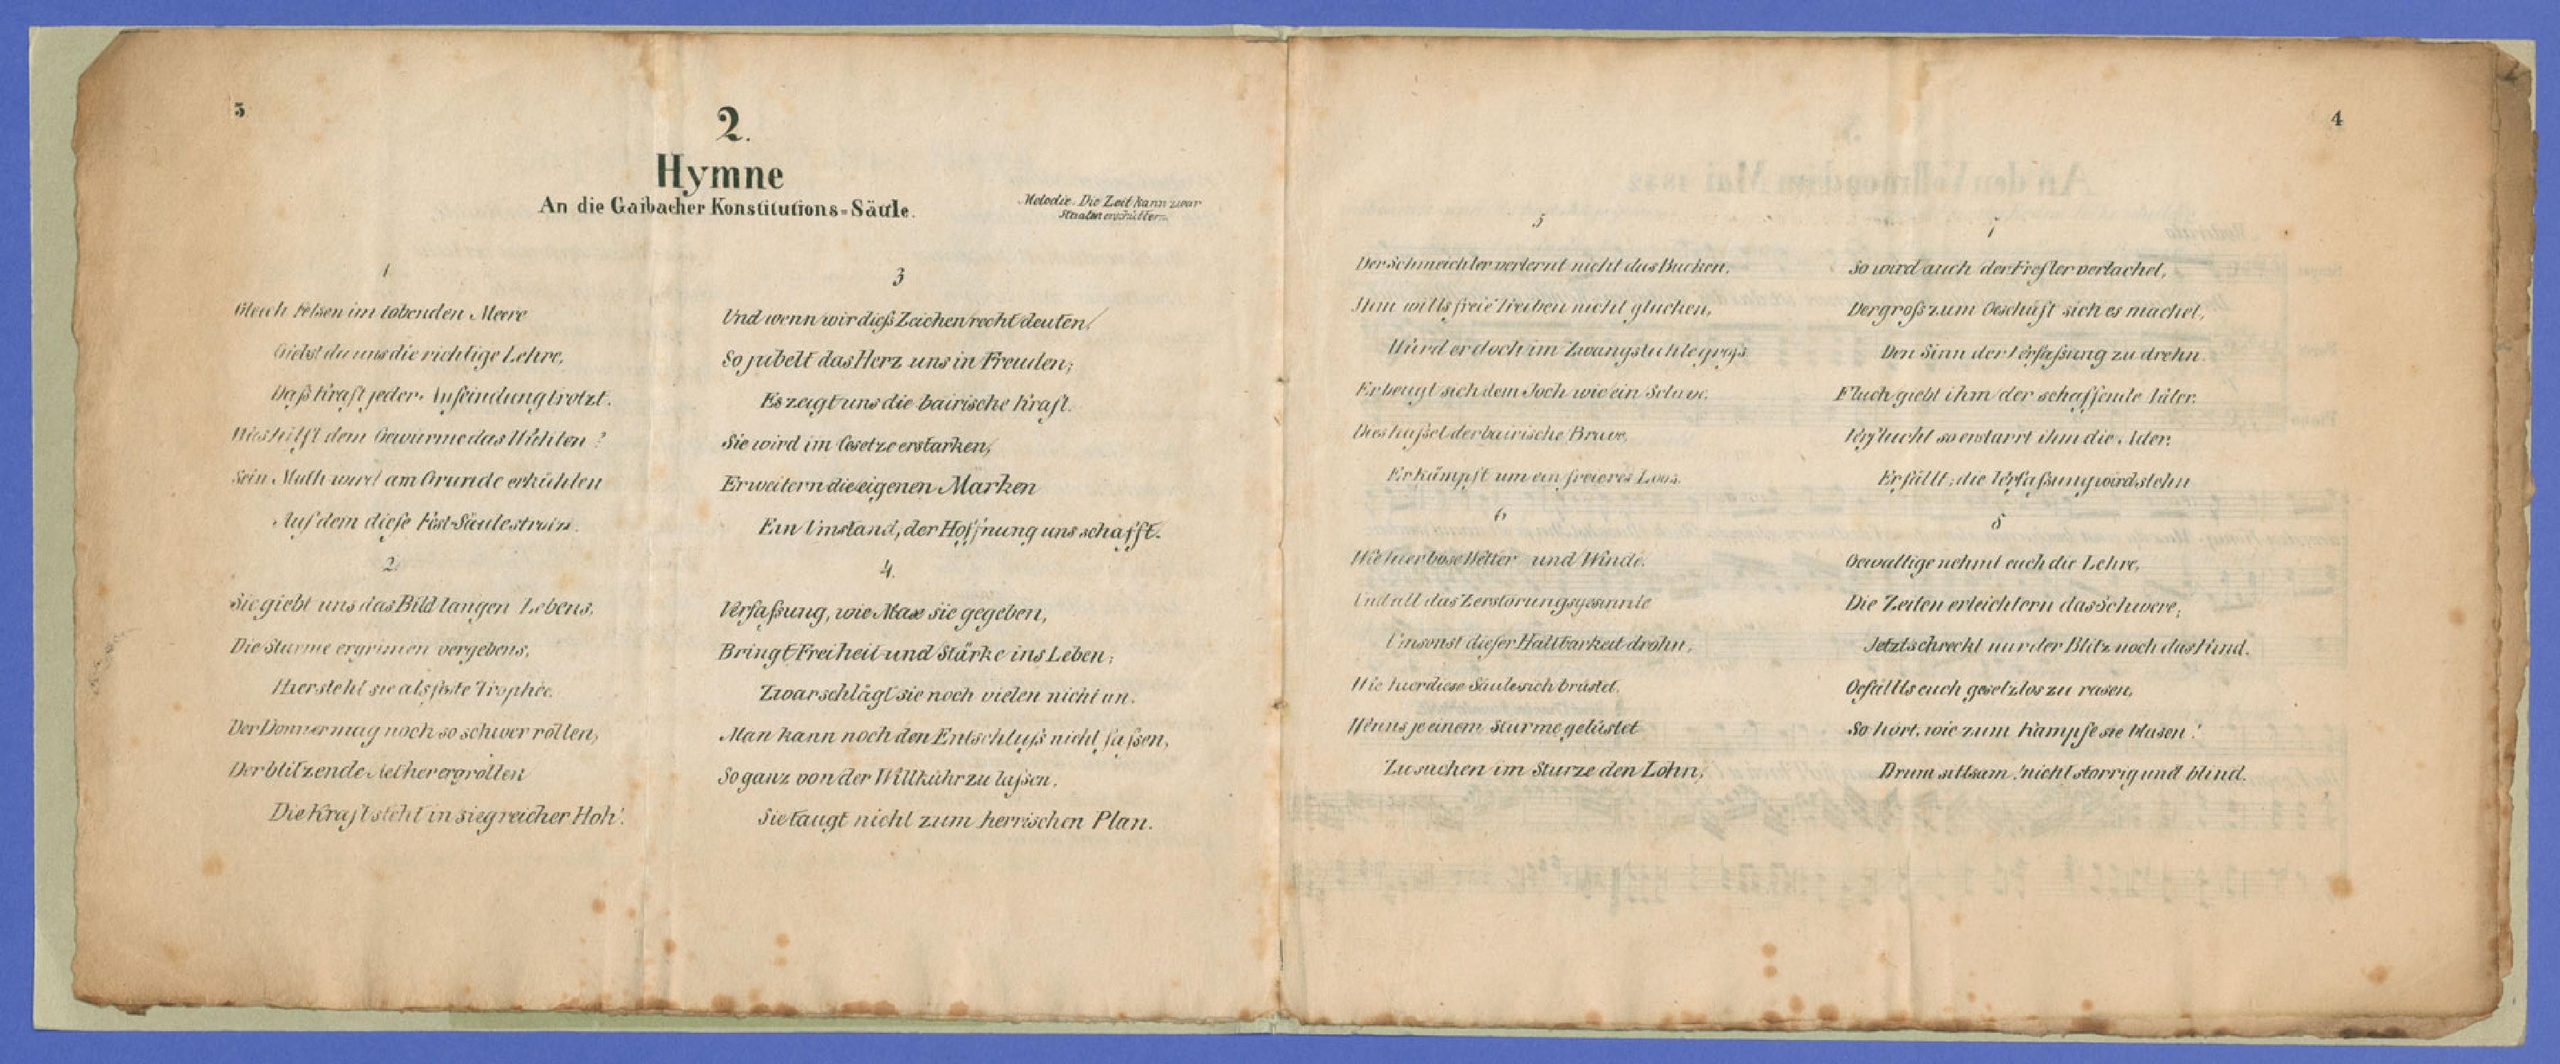 3
2.
Hymne
An die Gaibacher Konstitutions=Säule.
Melodie. Die Zeit kann zwar
Staaten erschüttern
1
Gleich Felsen im tobenden Meere
Giebst du uns die richtige Lehre,
Daß Kraft jeder Anfeindung trotzt.
Was hilft dem Gewürme das Wühlen?
Sein Muth wird am Grunde erkühlen
Auf dem diese Fest-Säule
2
Sie giebt uns das Bild langen Lebens,
Die Stürme ergrimen vergebens,
Hier steht sie als feste Trophée.
Der Donner mag noch so schwer rollen,
Der blitzende Aether ergrollen
Die Kraft steht in siegreicher Höh'.
3
Und wenn wir dieß Zeichen recht deuten,
So jubelt das Herz uns in Freuden;
Es zeigt uns die bairische Kraft.
Sie wird im Gesetze erstarken,
Erweitern die eigenen Marken
Ein Umstand, der Hoffnung uns schafft.
4.
Verfaßung, wie Max sie gegeben,
Bringt Freiheit und Stärke ins Leben;
Zwar schlägt sie noch vielen nicht an.
Man kann noch den Entschluß nicht faßen,
So ganz von der Willkühr zu laßen,
Sie taugt nicht zum herrischen Plan.
4
5
Der Schmeichler verlernt nicht das Bucken,
Ihm wills freie Treiben nicht glucken,
Würd er doch im Zwangstuhle groß.
Er beugt sich dem Joch wie ein Sclave.
Dies haßet der bairische Brave,
Er kämpft um ein freieres Loos.
6
Wie hier böse Wetter und Winde.
Und all das Zerstörungsgesinnte
Umsonst dieser Haltbarkeit drohn,
Wie hier diese Säule sich brüstet,
Wenns je einem Sturme gelüstet
Zu suchen im Sturze den Lohn,
7
So wird auch der Freßler verlachet,
Der groß zum Geschäft sich es machet,
Den Sinn der Verfaßung zu drehn.
Fluch giebt ihm der schaffende Vater.
Verflucht so erstarrt ihm die Ader.
Er fällt; die Verfaßung wird stehn
8
Gewaltige nehmt euch die Lehre,
Die Zeiten erleichtern das Schwere;
Jetzt schreckt nur der Blitz noch das Kind.
Gefällts euch gesetzlos zu rasen,
So hört, wie zum Kampfe sie blasen!
Drum sittsam! nicht storrig und blind.